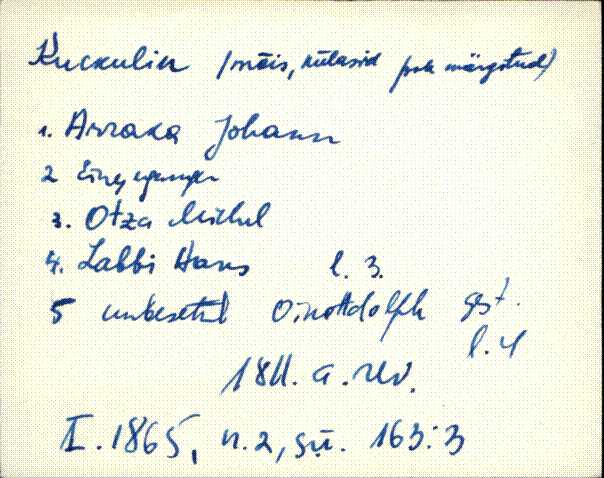 Kuckulin (mõis, külasid pole märgitud)
1. Arraka Johann
2 Eingegangen
3. Otza Michel
4. Labbi Hans l. 3.
5 unbesetzt Oino Adolph gest.
l. 4
1811. a. rev.
I. 1865, n. 2, sü. 163:3